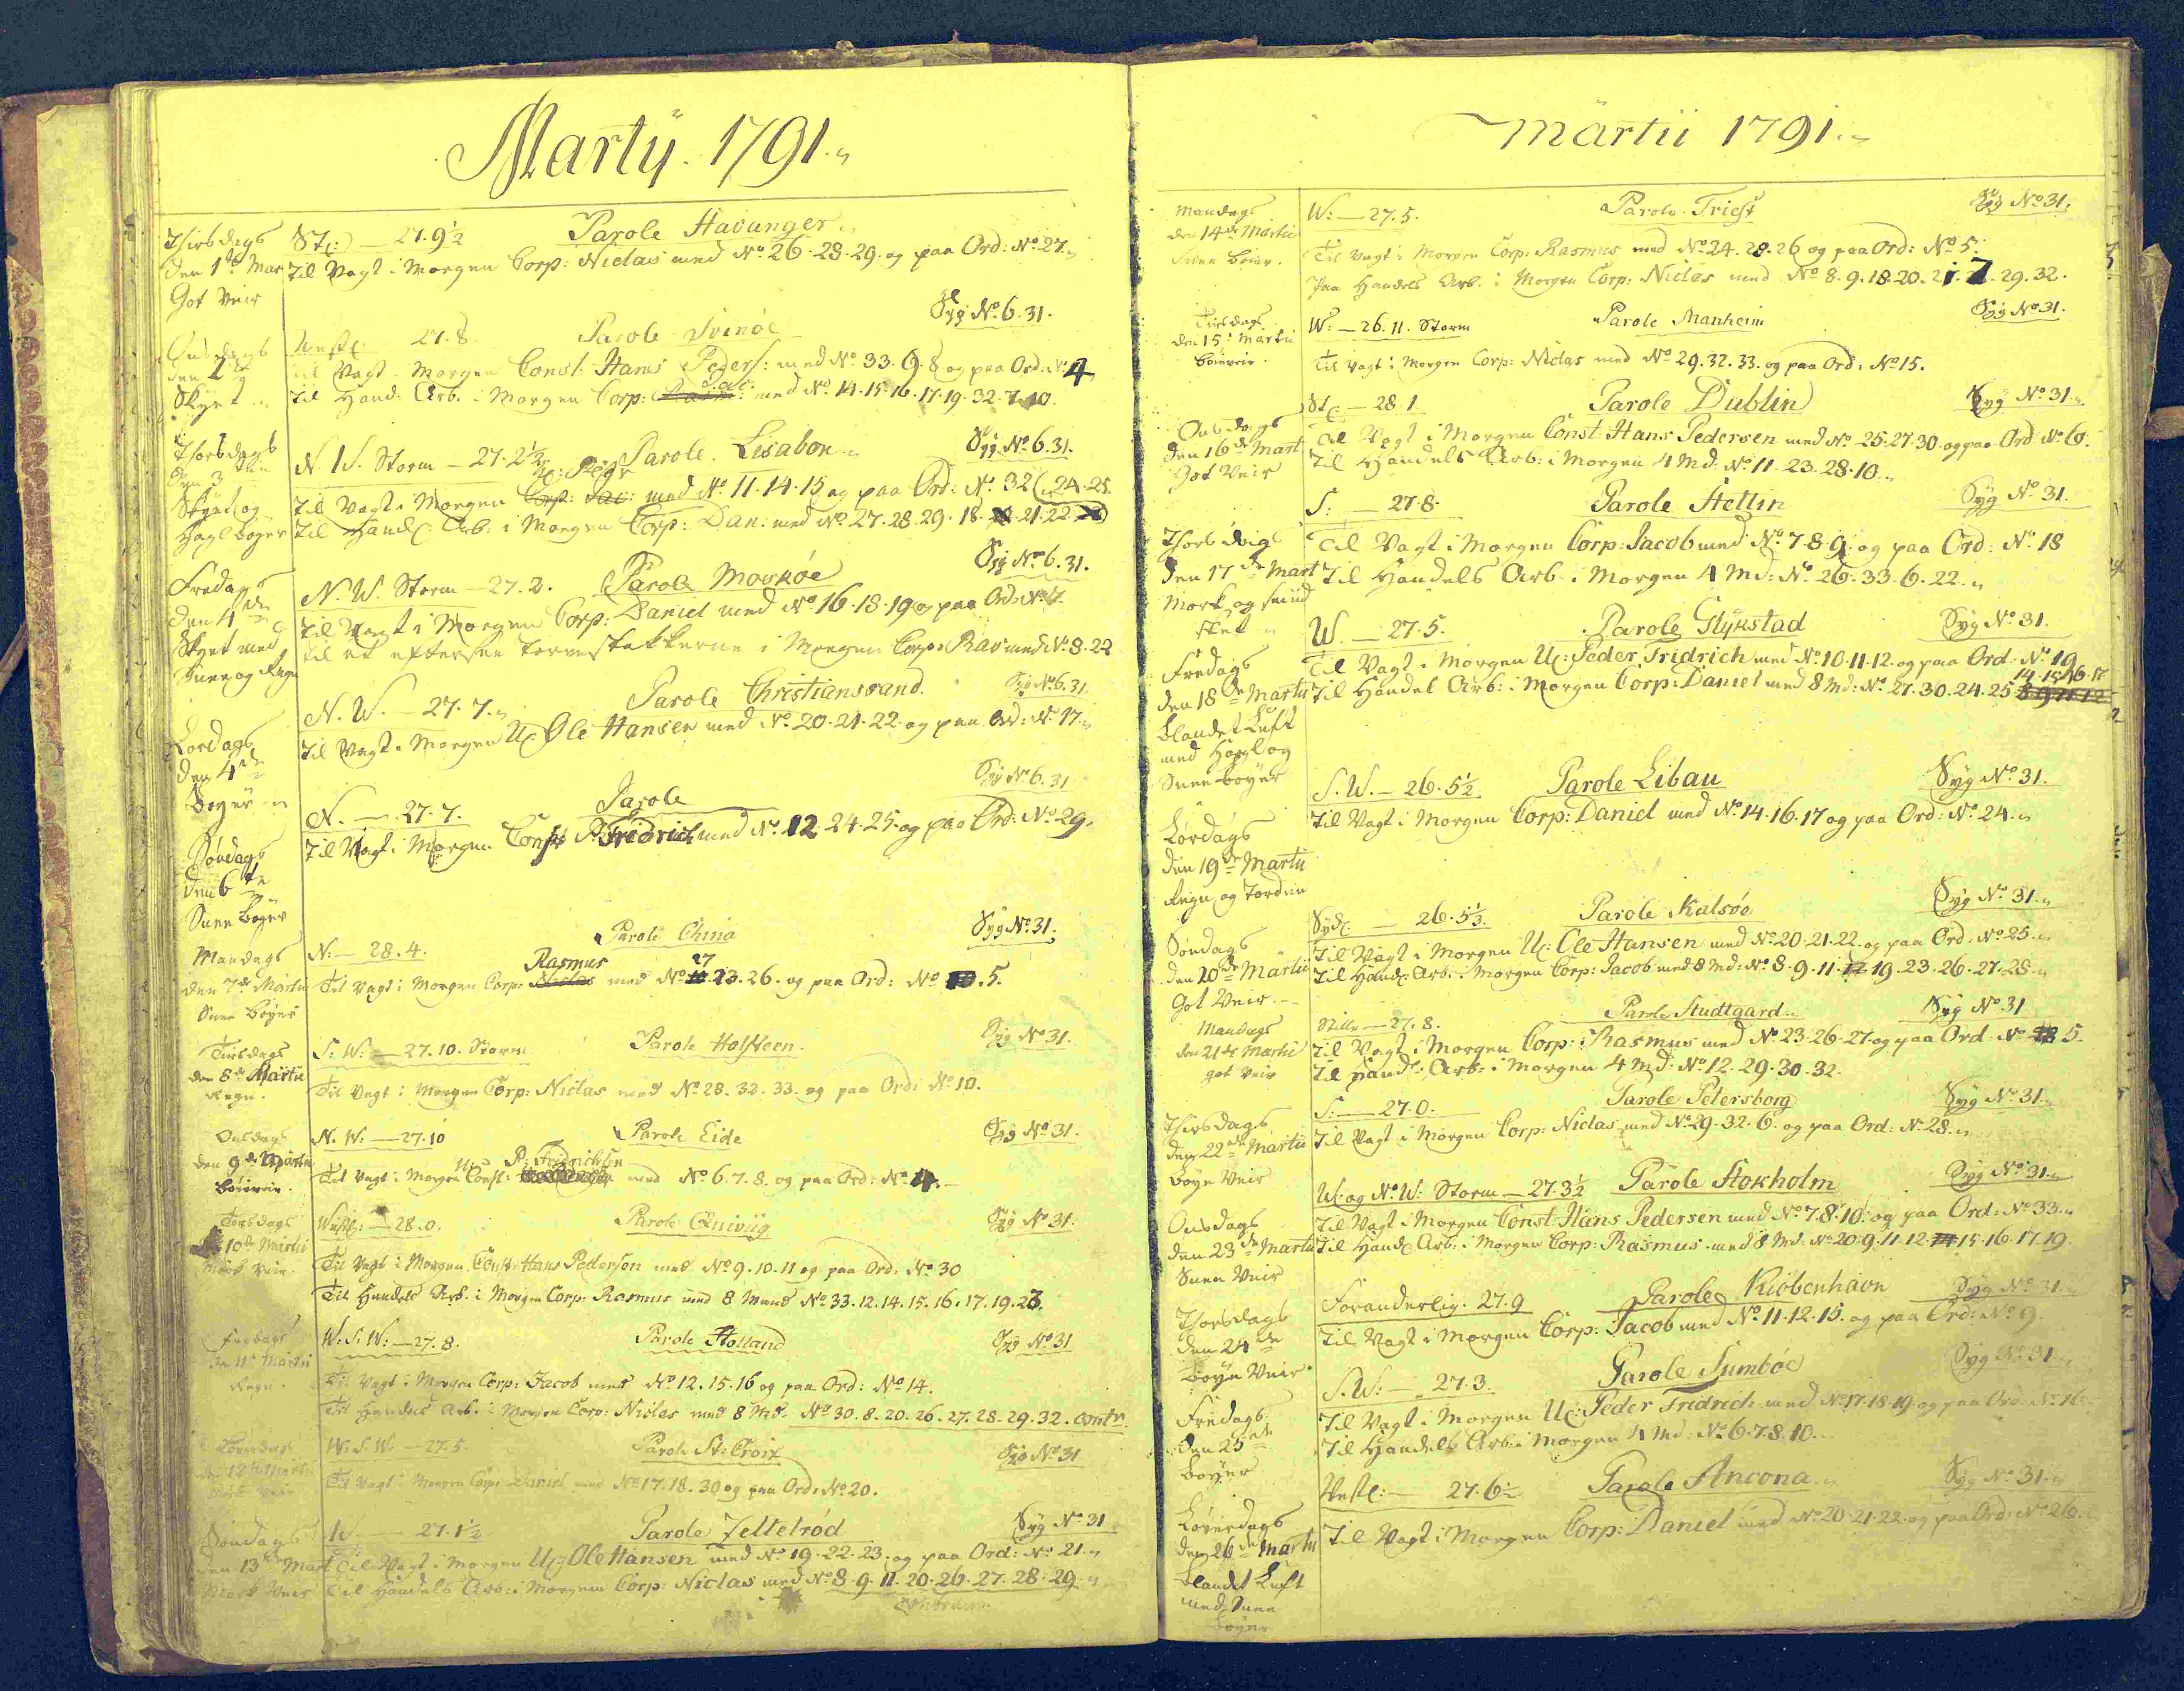 Martÿ. 1791.
Thirsdags
den 1te Mar
Got Veir
Stc: — 27.9½ Parole Havanger
Til Vagt i Morgen Corp: Niclas med No 26. 28. 29. og paa Ord: No 27.
Syg No 6. 31.
Onsdags
den 2
Skyet
27. 8. Parole Svinöe
Til Vagt i Morgen Const: Hans Peders: med No 33. 9. 8 og paa Ord. No 4
Til Hand: Arb. i Morgen Corp: Jac: med No 14. 15. 16. 17. 19. 32. 7. 10.
Thorsdags
den 3
Skyet og
Hagl böger
N. W. Storm — 27. 2½ Parole Lisabon Syg No 6. 31.
Til Vagt i Morgen med No 11. 14. 15 og paa Ord: No 32
24. 25.
Til Handl: Arb: i Morgen Corp: Dan: med No 27. 28. 29. 18. 21. 22
Fredags
den 4de
Skyet med
Snee og Regn
N. W. Storm — 27. 2. Parole Moskóe Syg No 6. 31.
Til Vagt i Morgen Corp: Daniel med No 16. 18. 19 og paa Ord: No 7
Til at eftersee torvestakkerne i Morgen Corp: Ras med No 8. 22
Lordags
den 4de
Boyer
N. W. — 27. 7. Parole Christiansand. Syg No 6. 31
Til Vagt i Morgen Uc: Ole Hansen med No 20. 21. 22 og paa Ord: No 17.
Söndags
den 6te
Snee Boger
N. — 27. 7. Parole Syg No 6. 31
Til Vagt i Morgen P: Fridrich med No 12. 24. 25. og paa Ord: No 29.
Mandags
den 7de Martii
Snee Böyer
N: — 28. 4. Parole China Syg No 31.
Til Vagt i Morgen Corp: Rasmus med No 27. 23. 26. og paa Ord: No 5.
Tirsdags
den 8de Martii
Regn.
S: W: — 27. 10. Storm Parole Holsteen. Syg No 31.
Til Vagt i Morgen Corp: Niclas med No 28. 32. 33. og paa Ord: No 10.
Onsdags
den 9de Martii
böieveir.
N. W: — 27. 10 Parole Eide Syg No 31.
Til Vagt i Morgen P: Fridrichsen med No 6. 7. 8. og paa Ord: No 4.
Torsdags
10de Martii
Mörk Veir.
— 28. 0. Parole Qviviig Syg No 31.
Til Vagt i Morgen Const: Hans Pederson med No 9. 10. 11 og paa Ord. No 30
Til Handels Arb. i Morgen Corp: Rasmus med 8 Mand No 33. 12. 14. 15. 16. 17. 19. 23.
Fredags
den 11te Martii
Regn.
W: S: W: — 27. 8. Parole Holland Syg No 31
Til Vagt i Morgen Corp: Jacob med No 12. 15. 16 og paa Ord: No 14.
Til Handels Arb. i Morgen Corp: Niclas med 8 Md. No 30. 8. 20. 26. 27. 28. 29. 32. contr.
Löverdags
den 12te Martii
Mörk Veir
W: S: W: — 27. 5. Parole St: Croix Syg No 31
Til Vagt i Morgen Corp: Daniel med No 17. 18. 30 og paa Ord: No 20.
Söndags
den 13de Mart
Mork Veir
W. 27. 1½ Parole Zelletród Syg No 31
Til Vagt i Morgen Uc: Ole Hansen med No 19. 22. 23. og paa Ord: No 21.
Til Handels Arb: i Morgen Corp: Niclas med No 8. 9. 11. 20. 26. 27. 28. 29.
Martii 1791.
Mandags
den 14de Martii
Snee böier.
W: — 27. 5. Parole Triest Syg No 31.
Til Vagt i Morgen Corp: Rasmus med No 24. 28. 26 og paa Ord: No 5.
Paa Handels Arb. i Morgen Corp: Niclas med No 8. 9. 18. 20. 29. 32.
Tirsdags
den 15de Martii
böieveir.
W: — 26. 11. Storm Parole Manheim Syg No 31.
Til Vagt i Morgen Corp: Niclas med No 29. 32. 33. og paa Ord: No 15.
Onsdags
den 16de Mart
Got Veir
Stc: — 28. 1. Parole Dublin Syg No 31.
Til Vagt i Morgen Const: Hans Pedersen med No 25. 27. 30. og paa Ord: No 6.
Til Handels Arb: i Morgen 4 Md: No 11. 23. 28. 10.
Thorsdags
den 17de Mart
Mork og
S: — 27. 8. Parole Stettin Syg No 31.
Til Vagt i Morgen Corp: Jacob med No 7. 8. 9. og paa Ord: No 18
Til Handels Arb. i Morgen 4 Md: No 26. 33. 6. 22.
Fredags
den 18de Martii
blandet Luft
med Hagl og
Snee böyer
W. — 27. 5. Parole Glykstad Syg No 31.
Til Vagt i Morgen Uc: Peder Fridrich med No 10. 11. 12. og paa Ord: No 19
14. 15. 16. 17
Til Handel Arb: i Morgen Corp: Daniel med 8 Md: No 27. 30. 24. 25
Lördags
den 19de Martii
Regn og Torden
S. W. — 26. 5½ Parole Libau Syg No 31.
Til Vagt i Morgen Corp: Daniel med No 14. 16. 17 og paa Ord: No 24.
Söndags
den 20de Martii
Got Veir
Sydc: — 26. 5⅓. Parole Kalsöe Syg No 31.
Til Vagt i Morgen Uc: Ole Hansen med No 20. 21. 22. og paa Ord: No 25.
Til Handc: Arb: i Morgen Corp: Jacob med 8 Md: No 8. 9. 11. 19. 23. 26. 27. 28.
Mandags
den 21de Martii
got Veir
Stille — 27. 8. Parole Studtgard Syg No 31
Til Vagt i Morgen Corp: Rasmus med No 23. 26. 27 og paa Ord: No 5.
Til Handl: Arb: i Morgen 4 Md: No 12. 29. 30. 32.
Thirsdags
den 22de Martii
Böye Veir
S: — 27. 0. Parole Petersborg Syg No 31.
Til Vagt i Morgen Corp: Niclas med No 29. 32. 6. og paa Ord: No 28.
Onsdags
den 23de Martii
Snee Veir
W: og N: W: Storm — 27. 3½ Parole Stokholm Syg No 31.
Til Vagt i Morgen Const: Hans Pedersen med No 7. 8. 10. og paa Ord: No 33.
Til Handc: Arb. i Morgen Corp: Rasmus med 8 Md: No 20. 9. 11. 12. 15. 16. 17. 19.
Thorsdags
den 24de
Böye Veir
Foranderlig. 27. 9 Parole Kiöbenhavn Syg No 31.
Til Vagt i Morgen Corp: Jacob med No 11. 12. 15. og paa Ord: No 9.
Fredags
den 25de
böyer
S. W: — 27. 3. Parole Sumböe Syg No 31
Til Vagt i Morgen Uc: Peder Fridrich med No 17. 18. 19 og paa Ord: No 16.
Til Handels Arb: i Morgen 4 Md: No 6. 7. 8. 10.
Löverdags
den 26de Martii
blandet Luft
med Snee
böyer
Vestl: — 27. 6½ Parole Ancona Syg No 31.
Til Vagt i Morgen Corp: Daniel med No 20. 21. 22. og paa Ord: No 26.